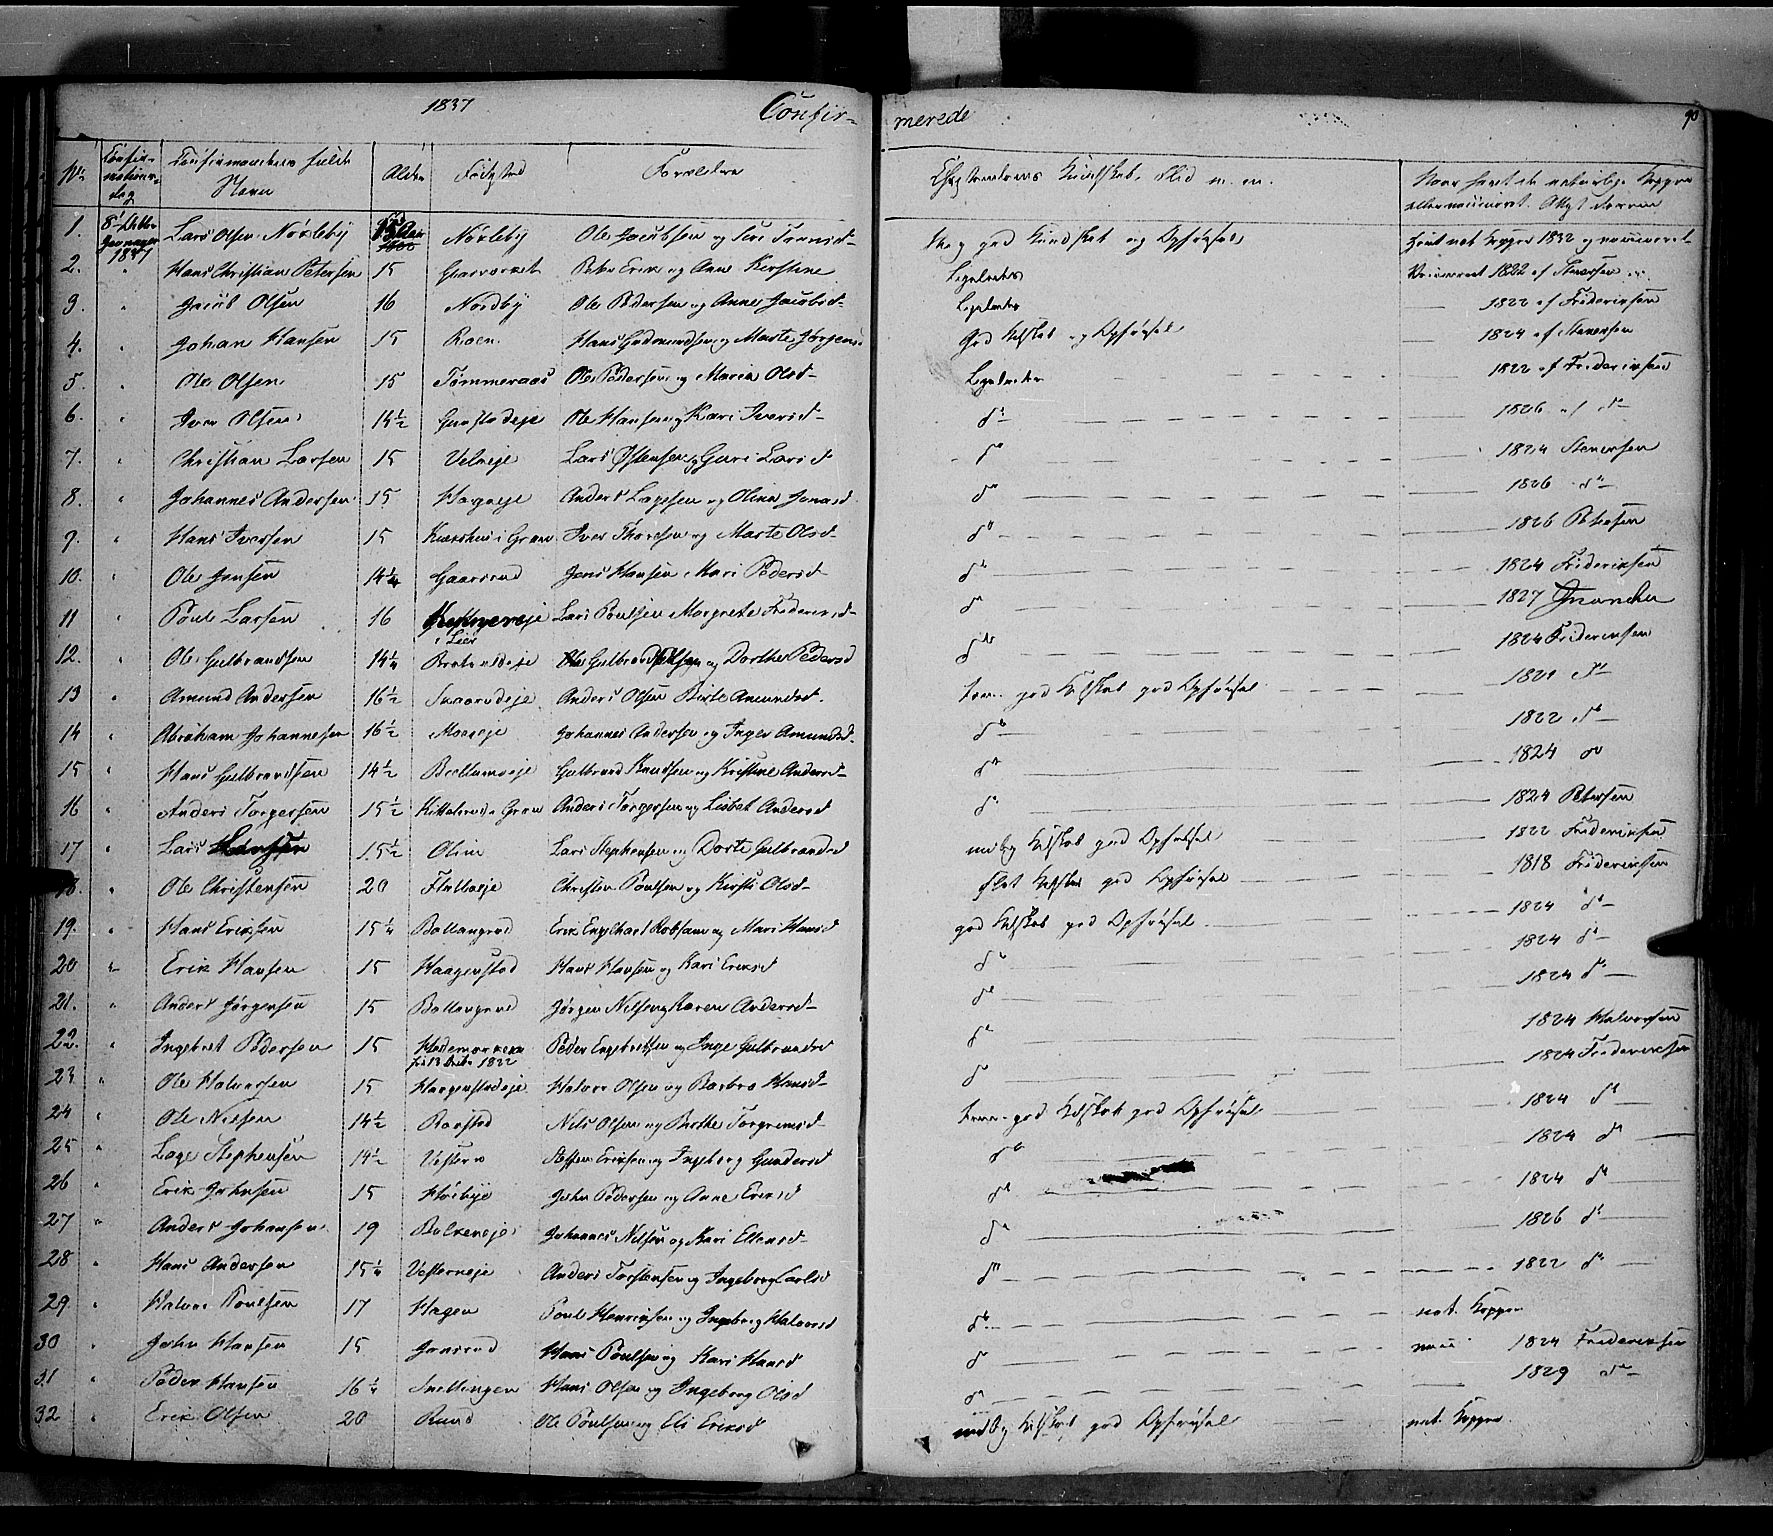 1837 Confir- merede 90
No Confirmations dag Confirmandens fulde Navn Alder Fødested Forældre Christendoms Kundskab, Flid m. m.
1. Lars Olsen Nørleby Nørleby Ole Jacobsen og Siri Fransd- Meg. god Kundskab og Opførsel havt nat. Kopper 1832 og vaccineret
2. " Hans Christian Petersen 15 Peter Erik og Anne Kirstine Ligeledes Vaccineret 1822 af Stenersen
3. " Jacob Olsen 16 Nordby Ole Pedersen og Anne Jacobsd- Ligeledes — 1822 af Frideriksen
4. " Johan Hansen 15 Roen Hans Gudmundsen og Marte Jørgensd God Kdskab og Opførsel — 1824 af Stenersen
5. " Ole Olsen 15 Tømmeraas Ole Pedersen og Maria Olsd- Ligeledes 1822 af Frideriksen
6. " Iver Olsen 14½ Ole Hansen og Kari Iversd- do 1826 af do
7. " Christian Larsen 15 Velneje Lars Østensen og Guri Larsd do 1824 Stenersen
8. " Johannes Andersen 15 Hageneje Anders Lagesen og Oline Jonasd do 1826 do
9. " Hans Iversen 15 Iver Thordsen og Marte Olsd- do 1826 Petersen
10. " Ole Jensen 14¼ Gaarsrud Jens Hansen, Mari Pedersd- do 1824 Frideriksen
11 " Poul Larsen 16 i Lier Lars Poulsen Margrete Frideriksd- do 1827
12. " Ole Gulbrandsen 14¼ Ole Gulbrandsen og Dorthe Pedersd do 1824 Frideriksen
13 " Amund Andersen 16½ Anders Olsen Birte Amundsd. tem. god Kdskab god Opførsel do
14 " Abraham Johannesen 16½ Moeneje Johannes Andersen og Inger Amundsd- do 1822 do
15 " Hans Gulbrandsen 14½ Gulbrand Knudsen og Kristine Andersd- do 1824 do
16 " Anders Torgersen 15½ Anders Torgersen og Lisbet Andersd do 1824 Petersen
17 " Lars 15½ Olim Lars Stephensen og Dorte Gulbrandsd Kdskab god Opførsel 1822 Frideriksen
18. " Ole Christensen 20 Christen Poulsen og Kirsti Olsd- slet Kdskab god Opførsel 1818 Frideriksen
19. " Hans Eriksen 15¼ Ballangrud Erik Engelhart Robsam og Mari Hansd god Kdskab god Opførsel 1824 do
20 " Erik Hansen 15 Haagenstad Hans Hansen og Kari Eriksd do 1824 do
21. " Anders Jørgensen 15 Ballangrud Jørgen Nilsen og Karen Andersd- do 1824 do
22. " Ingebret Pedersen 15 Hedemarken Peder Engebretsen og Inge Gulbrandsd do 1824 Halvorsen
23 " Ole Halvorsen 15 Haagenstadeje Halvor Olsen og Barbro Hansd- do 1824 Frideriksen
24 " Ole Nielsen 14½ Rarstad Nils Olsen og Birthe Torgrimsd- tem. god Kdskab god Opførsel 1824 do
25 " Lage Stephensen 14½ Vestern Steffen Eriksen og Ingeborg Gundersd do 1824 do
26 " Erik Johnsen 15 John Pedersen og Anne Eriksd do 1824 do
27 " Anders Johansen 19 Balkeneje Johannes Nilsen og Kari Ellensd- do 1826 do
28 " Hans Andersen 15¼ Vesterneje Anders Torstensen og Ingeborg Carlsd do 1822 do
29. " Halvor Poulsen 17 Hagen Poul Henriksen og Ingeborg Halvorsd do nat. Kopper
30 " John Hansen 15 Hans Poulsen og Kari Hansd do vacc. 1824 Frideriksen
31 " Peder Hansen 16¼ Snellingen Hans Olsen og Ingeborg Olsd do 1829 do
32 " Erik Olsen 20 Ruud Ole Poulsen og Eli Eriksd Kdskab god Opførsel nat. Kopper.